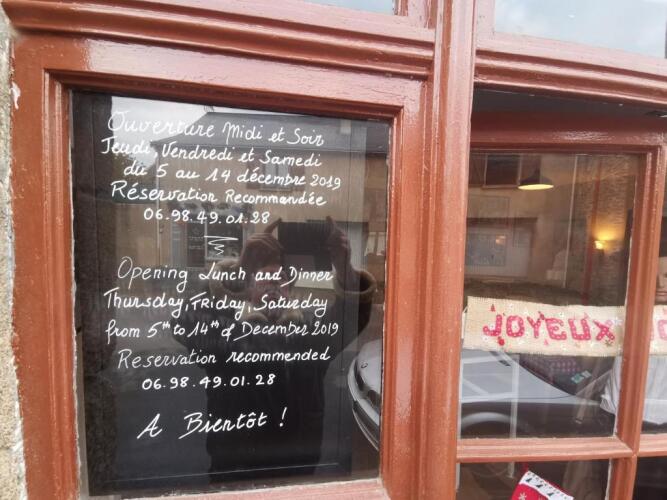 Ouverture Midi et Soir
Jeudi, Vendredi et Samedi
du 5 au 14 décembre 2019
Réservation Recommandée
06.98.49.01.28
Opening Lunch and Dinner
Thursday, Friday, Saturday
from 5th to 14th of December 2019
Reservation recommended
06.98.49.01.28
A Bientôt !
JOYEUX